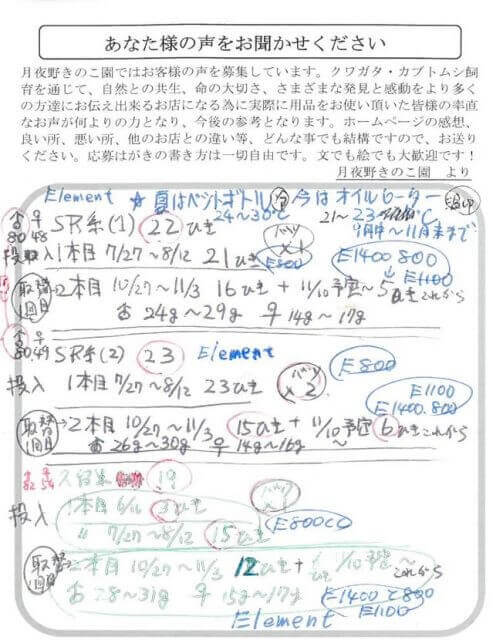 あなた様の声をお聞かせください
月夜野きのこ園ではお客様の声を募集しています。クワガタ・カブトムシ飼
育を通じて、自然との共生、命の大切さ、さまざまな発見と感動をより多く
の方達にお伝え出来るお店になる為に実際に用品をお使い頂いた皆様の率直
なお声が何よりの力となり、今後の参考となります。ホームページの感想、
良い所、悪い所、他のお店との違い等、どんな事でも結構ですので、お送り
ください。応募はがきの書き方は一切自由です。文でも絵でも大歓迎です！
月夜野きのこ園 より
Element ☆夏はペットボトル 今はオイルヒーター
24〜30℃ 21〜23 ℃
9月中〜11月末まで
♂ ♀ SR系(1) 22ひき
80 48
投入 1本目 7/27〜8/12 21ひき E800
E1400 800
↓E1100
取替1回目 →2本目 10/27〜11/3 16ひき + 11/10予定〜5ひきこれから
♂ 24g〜29g ♀ 14g〜17g
♂ ♀ SR系(2) 23 Element
80.49
E800
投入 1本目 7/27〜8/12 23ひき ×2
E1100
E1400.800
取替1回目 →2本目 10/27〜11/3 15ひき + 11/10予定 6ひきこれから
♂ 26g〜30g ♀ 14g〜16g
♂ ♀ 久留米 19
82 54
投入 1本目 6/16 3ひき
〃 7/27〜8/12 15ひき E800CC
取替1回目 2本目 10/27〜11/3 12ひき + 11/10予定〜これから
♂ 28〜31g ♀ 15g〜17g
E1400と800
E1100
Element